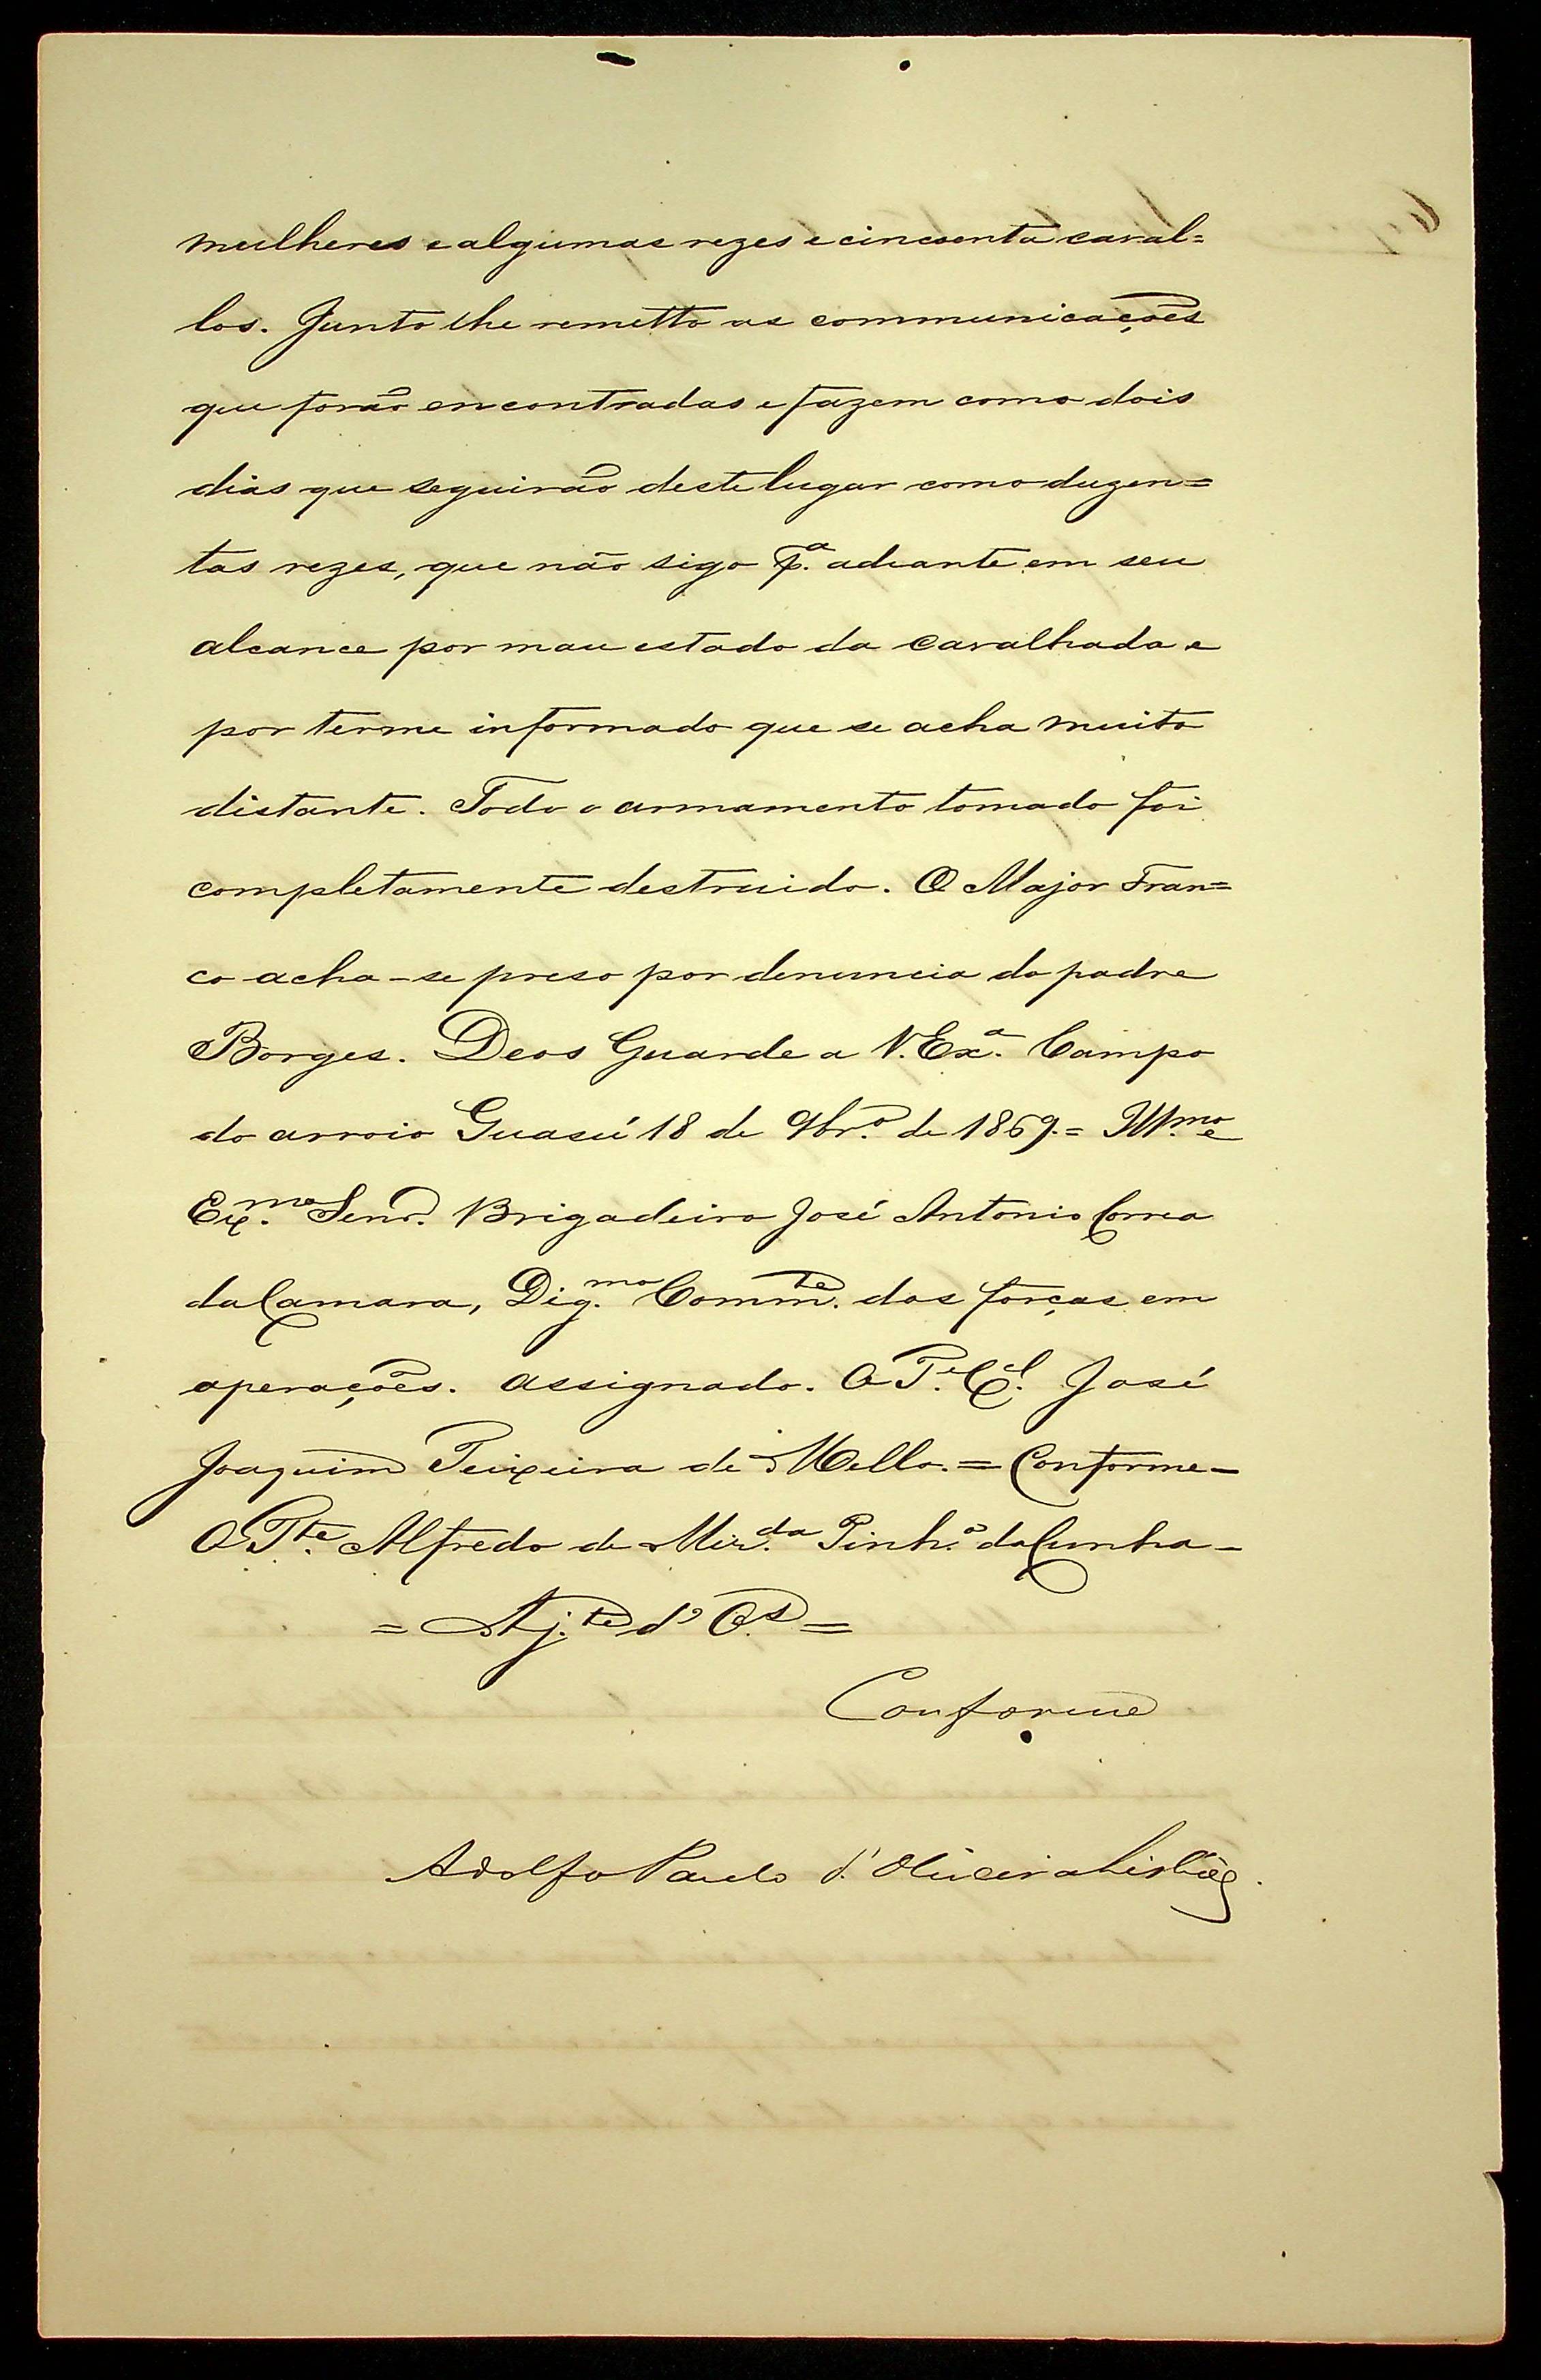 mulheres e algumas rezes e cincoenta caval=
los. Junto lhe remetto as communicações
que forão encontradas e fazem como dois
dias que seguirão deste lugar como duzen=
tas rezes, que não sigo p.ª adiante em seu
alcance por mau estado da cavalhada e
por terme informado que se acha muito
distante. Todo o armamento tomado foi
completamente destruido. O Major Fran=
co acha-se preso por denuncia do padre
Borges. Deos Guarde a V. Ex.ª Campo
do arroio Guasú 18 de 9br.º de 1869.= Ill.mo e
Ex.mo Senr. Brigadeiro José Antonio Correa
da Camara, Dig.mo Comm.te das forças em
operações. Assignado. O T.e C.el José
Joaquim Teixeira de Mello.= Conforme-
O T.te Alfredo de Mir.da Pinh.º da Cunha-
= Aj.te d'O.s =
Conforme
Adolfo Paulo d'Oliveira Lisbôa